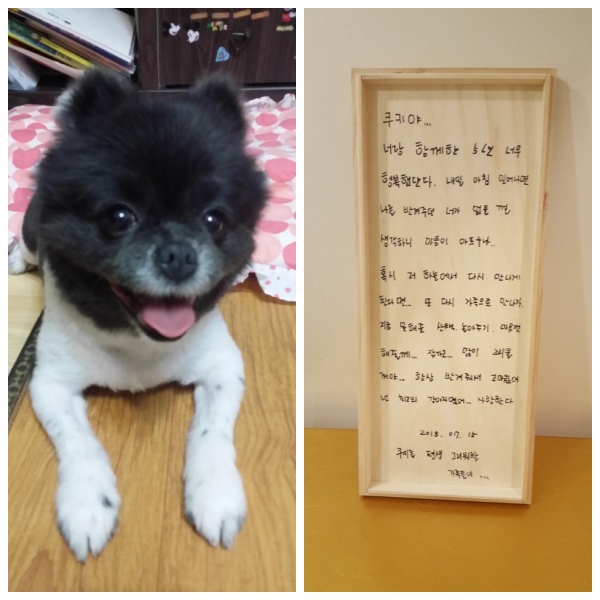 쿠키야...
너랑 함께한 5년 너무
행복했단다. 내일 아침 일어나면
나를 반겨주던 너가 없을 껄
생각하니 마음이 아프구나..
혹시 저 하늘에서 다시 만나게
된다면... 또 다시 가족으로 만나자.
지금 못해준 산책. 놀아주기.
해줄께... 많이
항상 반겨줘서 고마웠어
넌 최고의 강아지였어... 사랑한다
2018. 07. 15
쿠키를 평생 그리워할
가족일내 ...